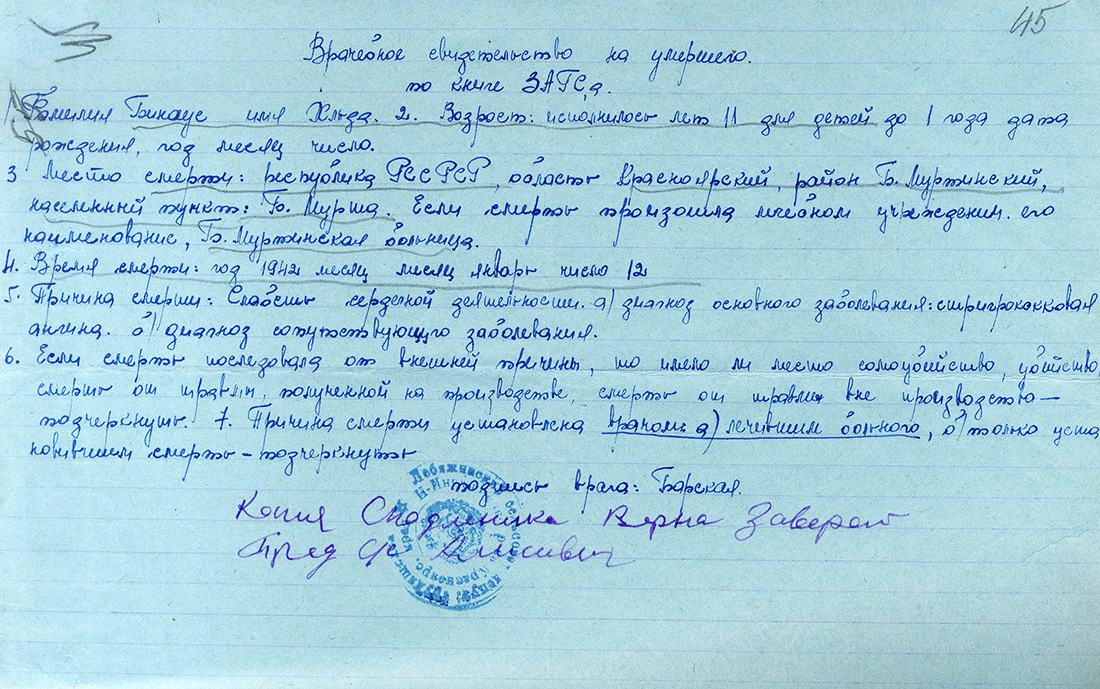 45
Врачебное свидетельство на умершего.
по книге ЗАГС,а.
1. Фамилия Бинаус имя Хльда. 2. Возраст: исполнилось лет 11 для детей до 1 года дата
рождения, год месяц число.
3 Место смерти: республика РССРСР, область Красноярский, район Б. Муртинский,
населенный пункт: Б. Мурта. Если смерть произошла лечебном учреждении. его
наименование, Б. Муртинская больница.
4. Время смерти: год 1942 месяц месяц январь число 12
5. Причина смерти: Слабость сердечной деятельности. а) диагноз основного заболевания: стригрококковая
ангина. б) диагноз сопутствующего заболевания.
6. Если смерть последовала от внешней причины, то имело ли место самоубийство, убийство,
смерть от травмы, полученной на производстве, смерть от травмы вне производство —
подчеркнуть. 7. Причина смерти установлена врачом: а) лечившим больного, б) только уста
новившем смерть – подчеркнуть
подпись врача: Барская.
Копия С подлиника Верна Заверяю
Пред с/с